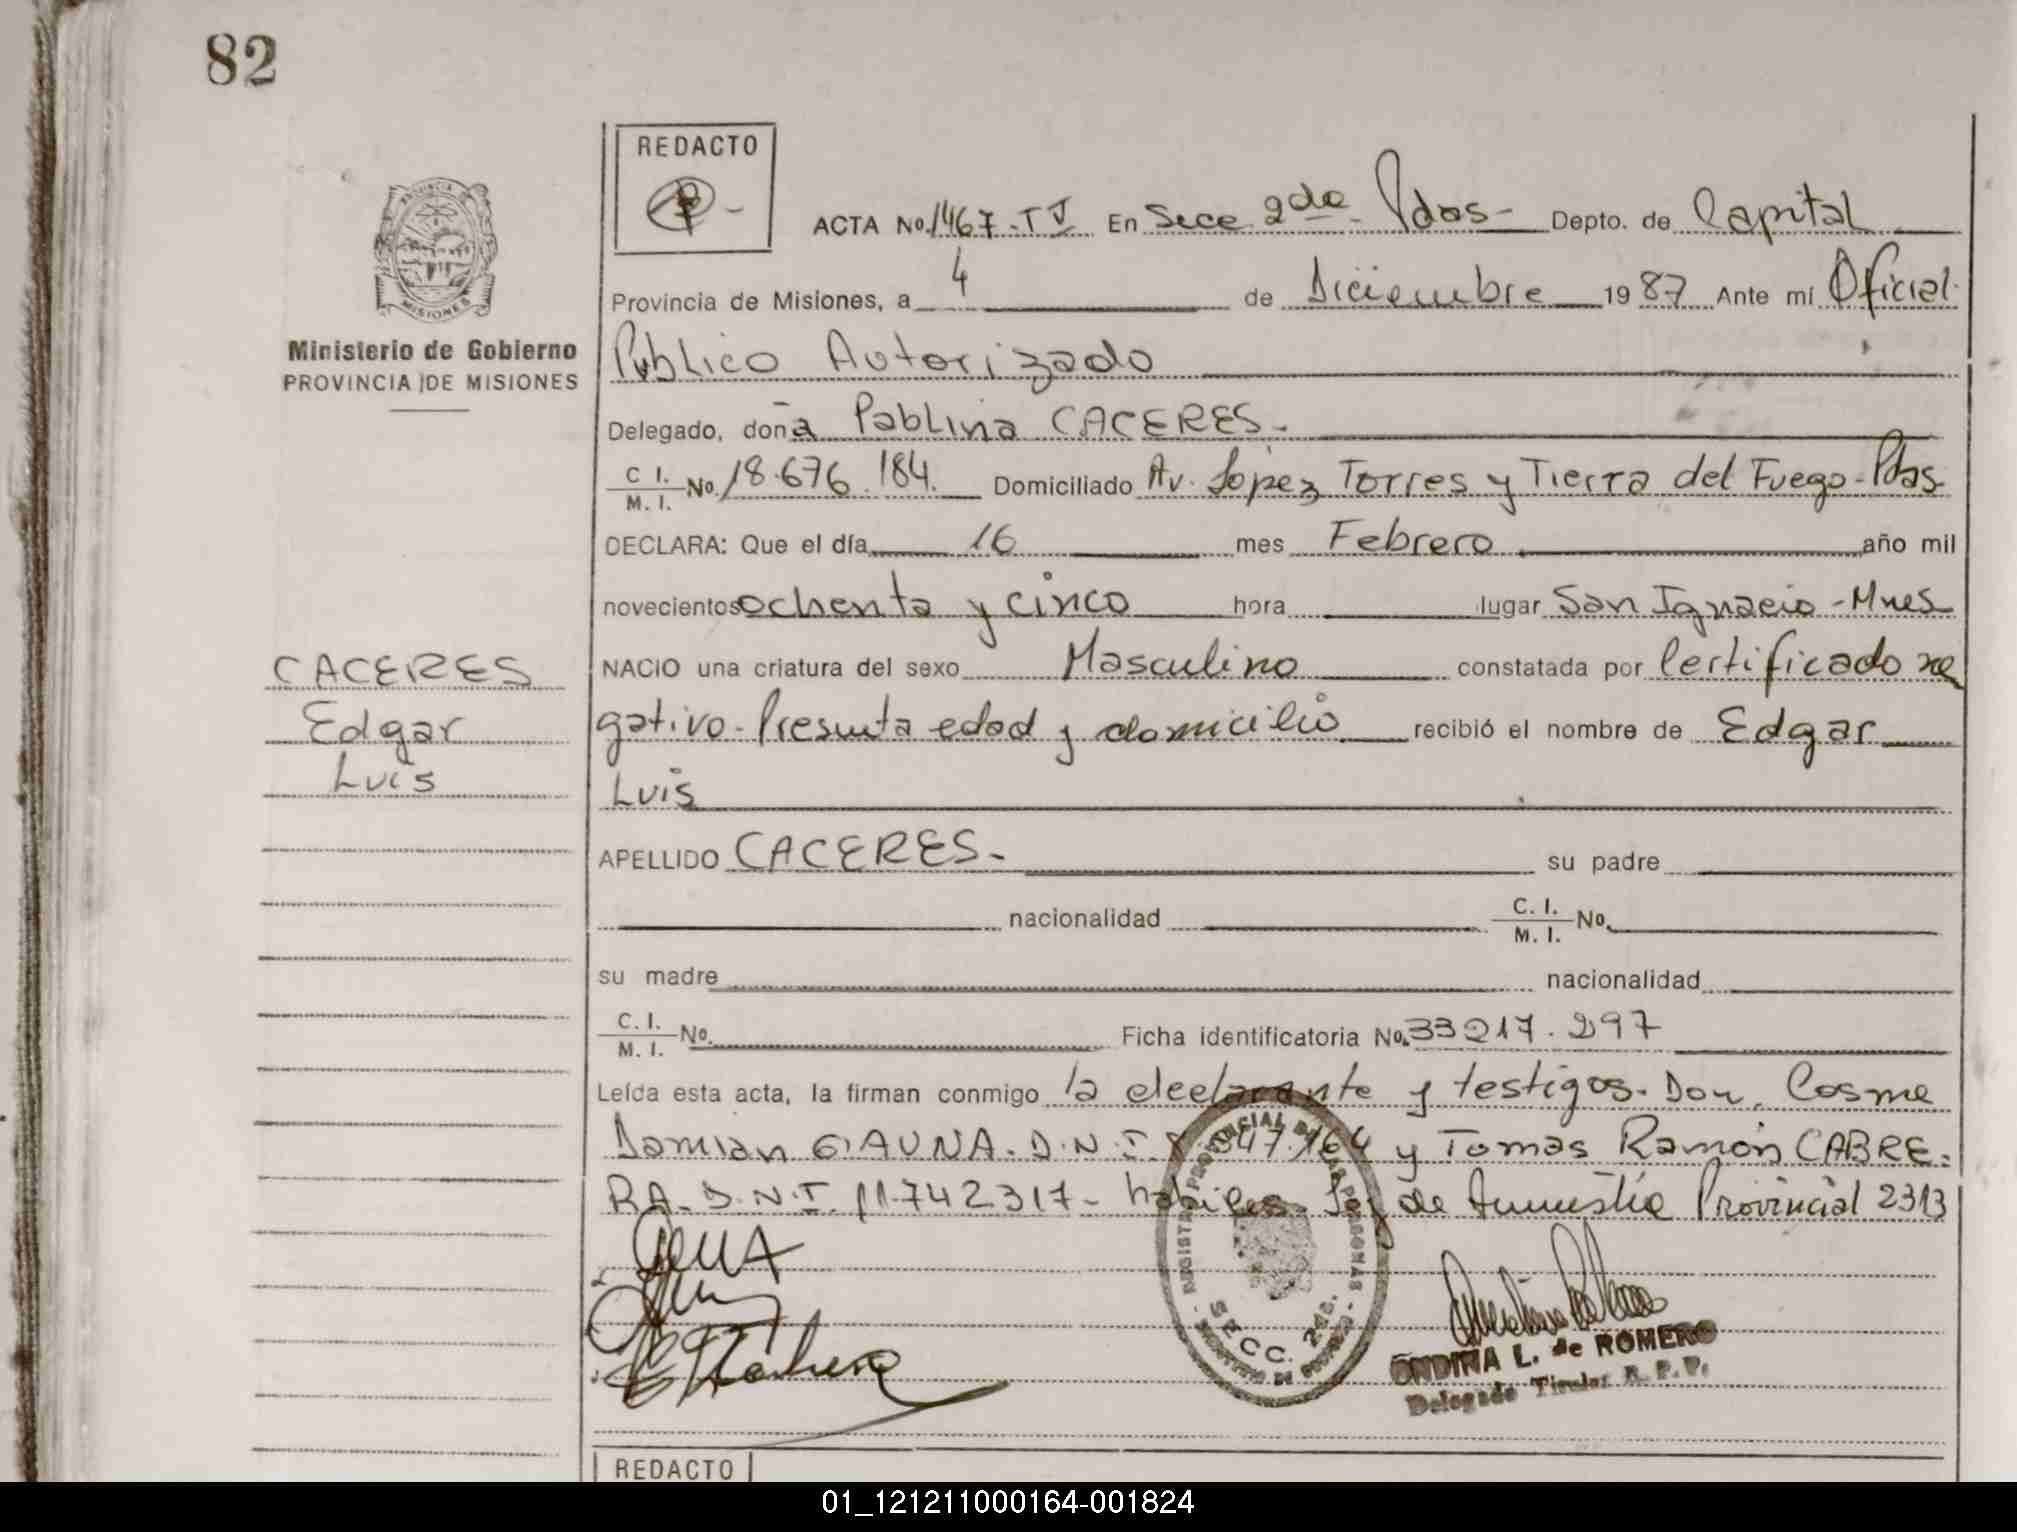 82
REDACTO
ACTA No. 1467-TV En Secc 2da Pdas- Depto. de Capital
Provincia de Misiones, a 4 de Diciembre 1987 Ante mí Oficial
Público Autorizado
Ministerio de Gobierno
PROVINCIA DE MISIONES
Delegado, doña Pablina CACERES.-
C. I. / M. I. No. 18.676.184. Domiciliado Av. López Torres y Tierra del Fuego-Pdas-
DECLARA: Que el día 16 mes Febrero año mil
novecientos ochenta y cinco hora lugar San Ignacio-Mnes
NACIO una criatura del sexo Masculino constatada por Certificado ne
gativo-Presunta edad y domicilio recibió el nombre de Edgar
Luis
CACERES
Edgar
Luis
APELLIDO CACERES- su padre
nacionalidad C. I. / M. I. No.
su madre nacionalidad
C. I. / M. I. No. Ficha identificatoria No. 33217.297
Leída esta acta, la firman conmigo la declarante y testigos. Don. Cosme
Damian GAUNA. D.N.I. 347.164 y Tomas Ramón CABRE-
RA. D.N.I. 11.742317- habiles Ley de Amnistía Provincial 2313
REGISTRO PROVINCIAL DE LAS PERSONAS
SECC. 2da.
ONDINA L. de ROMERO
Delegado Titular R. P. P.
REDACTO
01_121211000164-001824